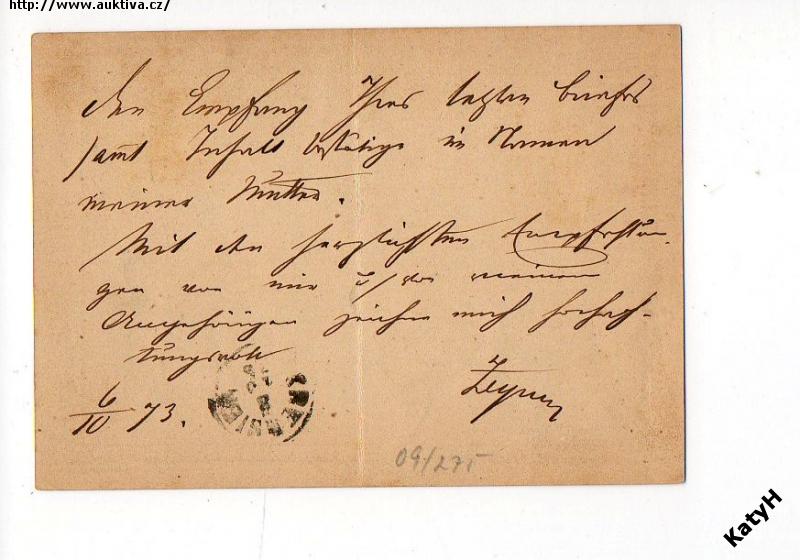 http://www.auktiva.cz/
Den Empfang Ihres letzten Briefes
samt Inhalt bestätige im Namen
meiner Mutter.
Mit den herzlichsten Empfehlun-
gen von mir u/ von meinen
Angehörigen zeichne mich hochach-
tungsvoll
6/10 73.
09/275
KatyH